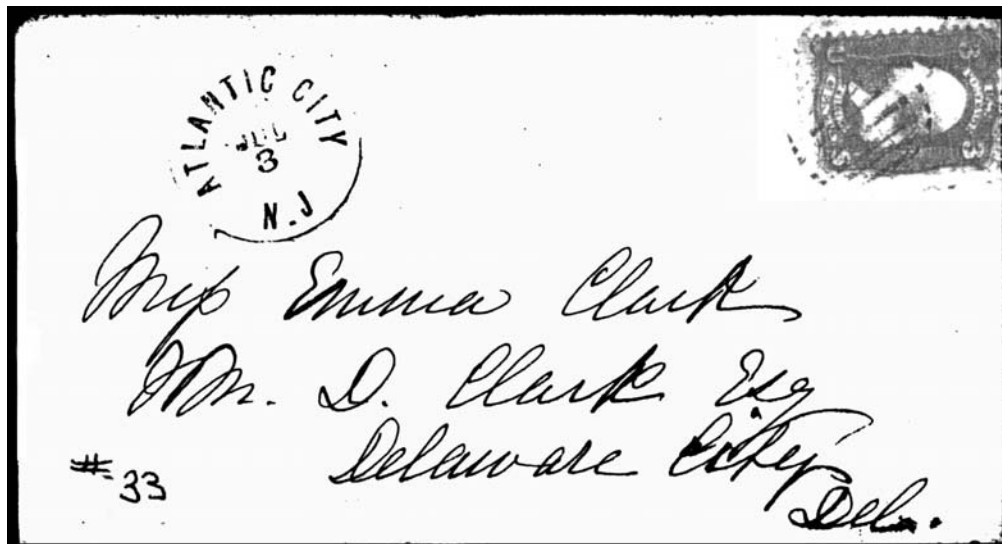 ATLANTIC CITY
JUL
3
N.J
3 3
Miss Emma Clark
Wm. D. Clark Esq
Delaware City
Del.
#33